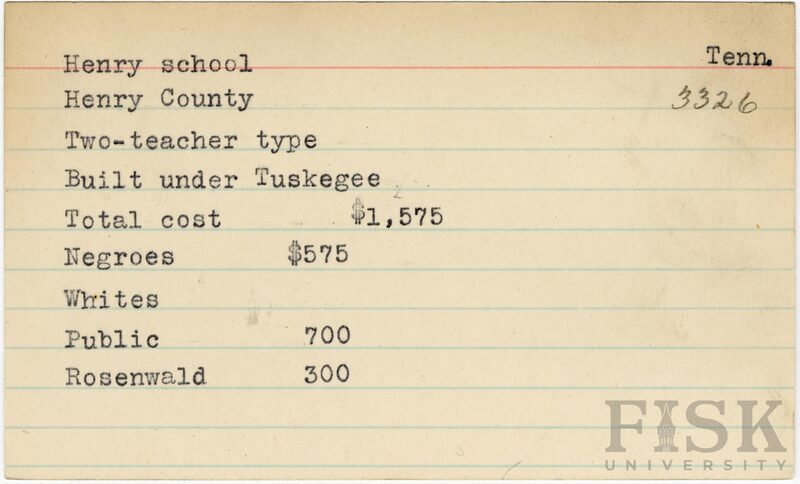 Henry school Tenn.
Henry County 3326
Two-teacher type
Built under Tuskegee
Total cost $1,575
Negroes $575
Whites
Public 700
Rosenwald 300
FISK
UNIVERSITY